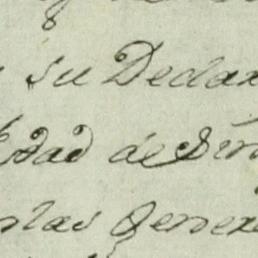 su Declar
dad de Sin
en las Genera